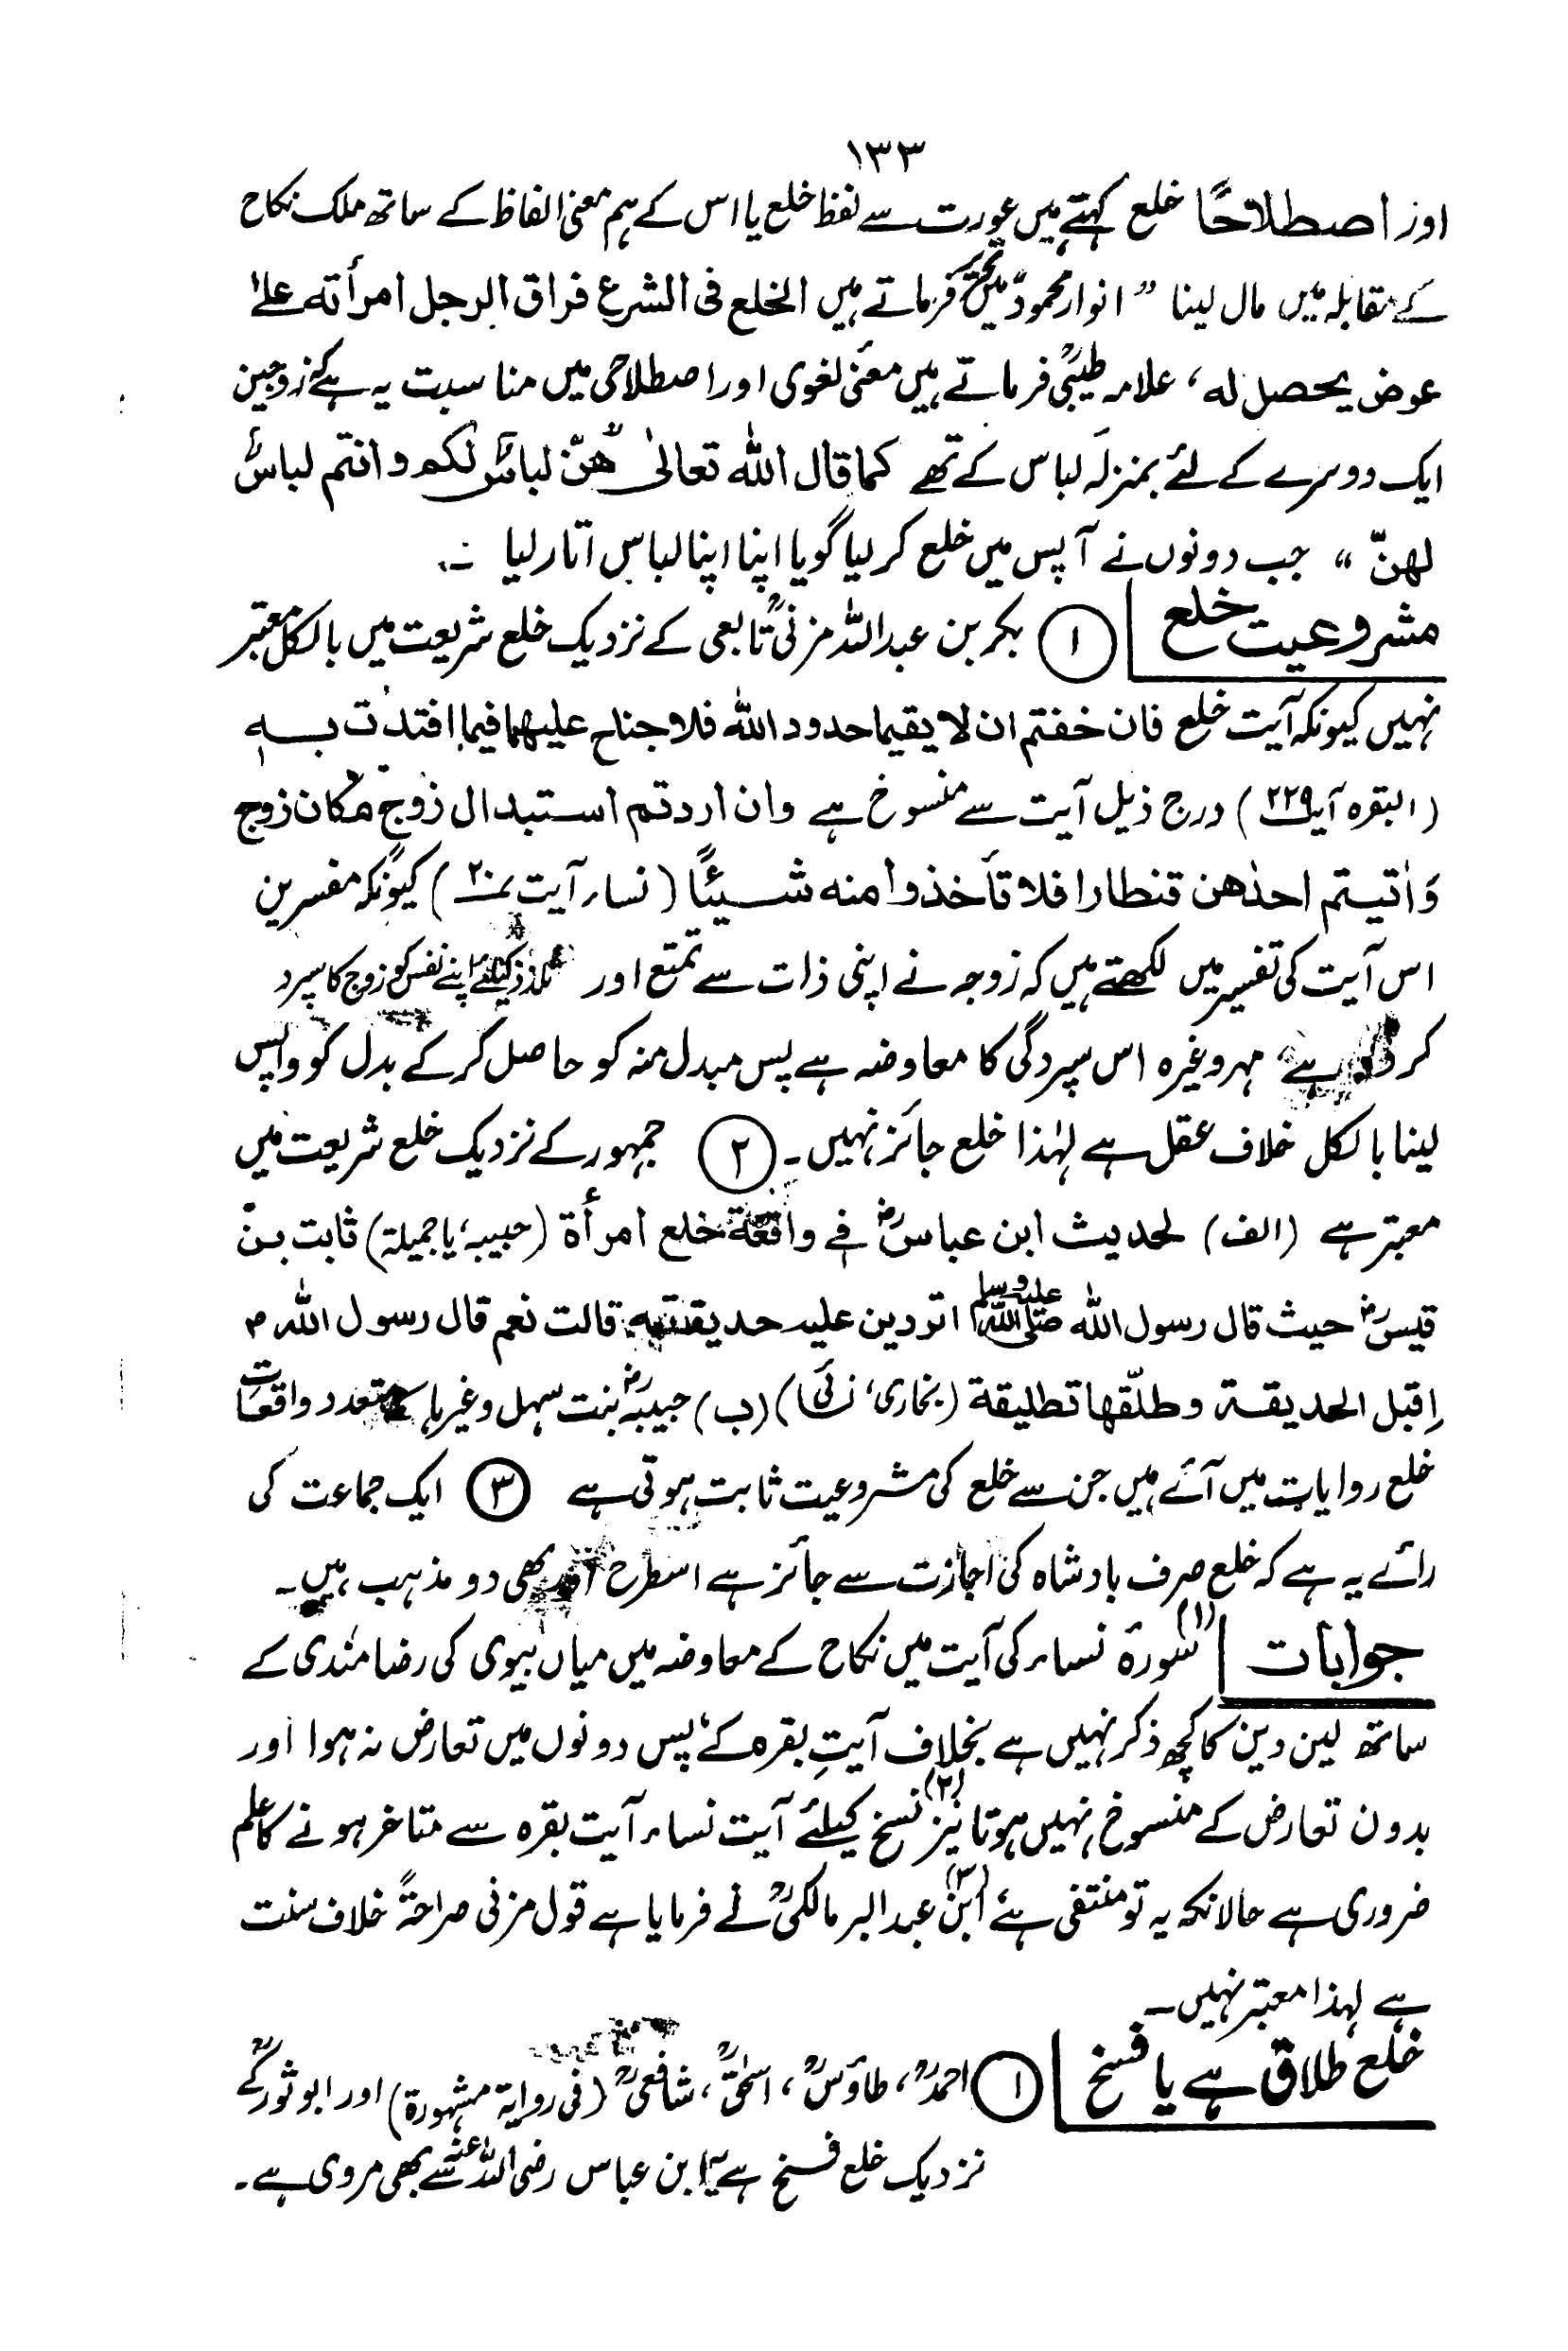 ۱۳۳
اور اصطلاحًا خلع کہتے ہیں عورت سے لفظ خلع یا اس کے ہم معنی الفاظ کے ساتھ ملک نکاح
کے مقابلہ میں مال لینا ” انوار محمودؒ میں تحریر فرماتے ہیں الخلع فی الشرع فراق الرجل امرأته علیٰ
عوض یحصل له ، علامہ طیبیؒ فرماتے ہیں معنی لغوی اور اصطلاحی میں مناسبت یہ ہے کہ زوجین
ایک دوسرے کے لئے بمنزلہ لباس کے تھے کما قال اللہ تعالیٰ ھنّ لباسٌ لکم وانتم لباسٌ
لھنّ “ جب دونوں نے آپس میں خلع کر لیا گویا اپنا اپنا لباس اتار لیا ۔
مشروعیت خلع ۱ بکر بن عبداللہ مزنیؒ تابعی کے نزدیک خلع شریعت میں بالکل معتبر
نہیں کیونکہ آیت خلع فان خفتم ان لا یقیما حدود اللہ فلا جناح علیهما فیما افتدت به
(البقرہ آیت ۲۲۹) درج ذیل آیت سے منسوخ ہے وان اردتم استبدال زوج مکان زوج
وَاٰتیتم احدٰھن قنطارا فلا تأخذوا منه شیئًا (نساء آیت ۲۰) کیونکہ مفسرین
اس آیت کی تفسیر میں لکھتے ہیں کہ زوجہ نے اپنی ذات سے تمتع اور تلذذ کیلئے اپنے نفس کو زوج کا سپرد
کر دی ہے، مہر وغیرہ اس سپردگی کا معاوضہ ہے پس مبدل منہ کو حاصل کر کے بدل کو واپس
لینا بالکل خلاف عقل ہے لہٰذا خلع جائز نہیں۔ ۲ جمہور کے نزدیک خلع شریعت میں
معتبر ہے (الف) لحدیث ابن عباسؓ فی واقعة خلع امرأة (حبیبہ، یا جمیلة) ثابت بنّ
قیسؓ حیث قال رسول اللہ صلی اللہ علیہ وسلم اتردین علیه حدیقته قالت نعم قال رسول اللہ ؐ
اِقبل الحدیقة وطلّقها تطلیقة (بخاری، نسائی) (ب) حبیبہؓ بنت سہل وغیرہا کے متعدد واقعات
خلع روایات میں آئے ہیں جن سے خلع کی مشروعیت ثابت ہوتی ہے ۳ ایک جماعت کی
رائے یہ ہے کہ خلع صرف بادشاہ کی اجازت سے جائز ہے اسطرح اور بھی دو مذہب ہیں۔
جوابات (۱) سورۃ نساء کی آیت میں نکاح کے معاوضہ میں میاں بیوی کی رضامندی کے
ساتھ لین دین کا کچھ ذکر نہیں ہے بخلاف آیتِ بقرہ کے، پس دونوں میں تعارض نہ ہوا اور
بدون تعارض کے منسوخ نہیں ہوتا (۲) نیز نسخ کیلئے آیت نساء آیت بقرہ سے متاخر ہونے کا علم
ضروری ہے حالانکہ یہ تو منتفی ہے، (۳) ابن عبدالبر مالکیؒ نے فرمایا ہے قول مزنی صراحۃً خلاف سنت
ہے لہذا معتبر نہیں۔
خلع طلاق ہے یا فسخ ۱ احمدؒ، طاؤسؒ، اسحٰقؒ، شافعیؒ (فی روایة مشہورة) اور ابو ثورؒ کے
نزدیک خلع فسخ ہے یہ ابن عباس رضی اللہ عنہ سے بھی مروی ہے۔